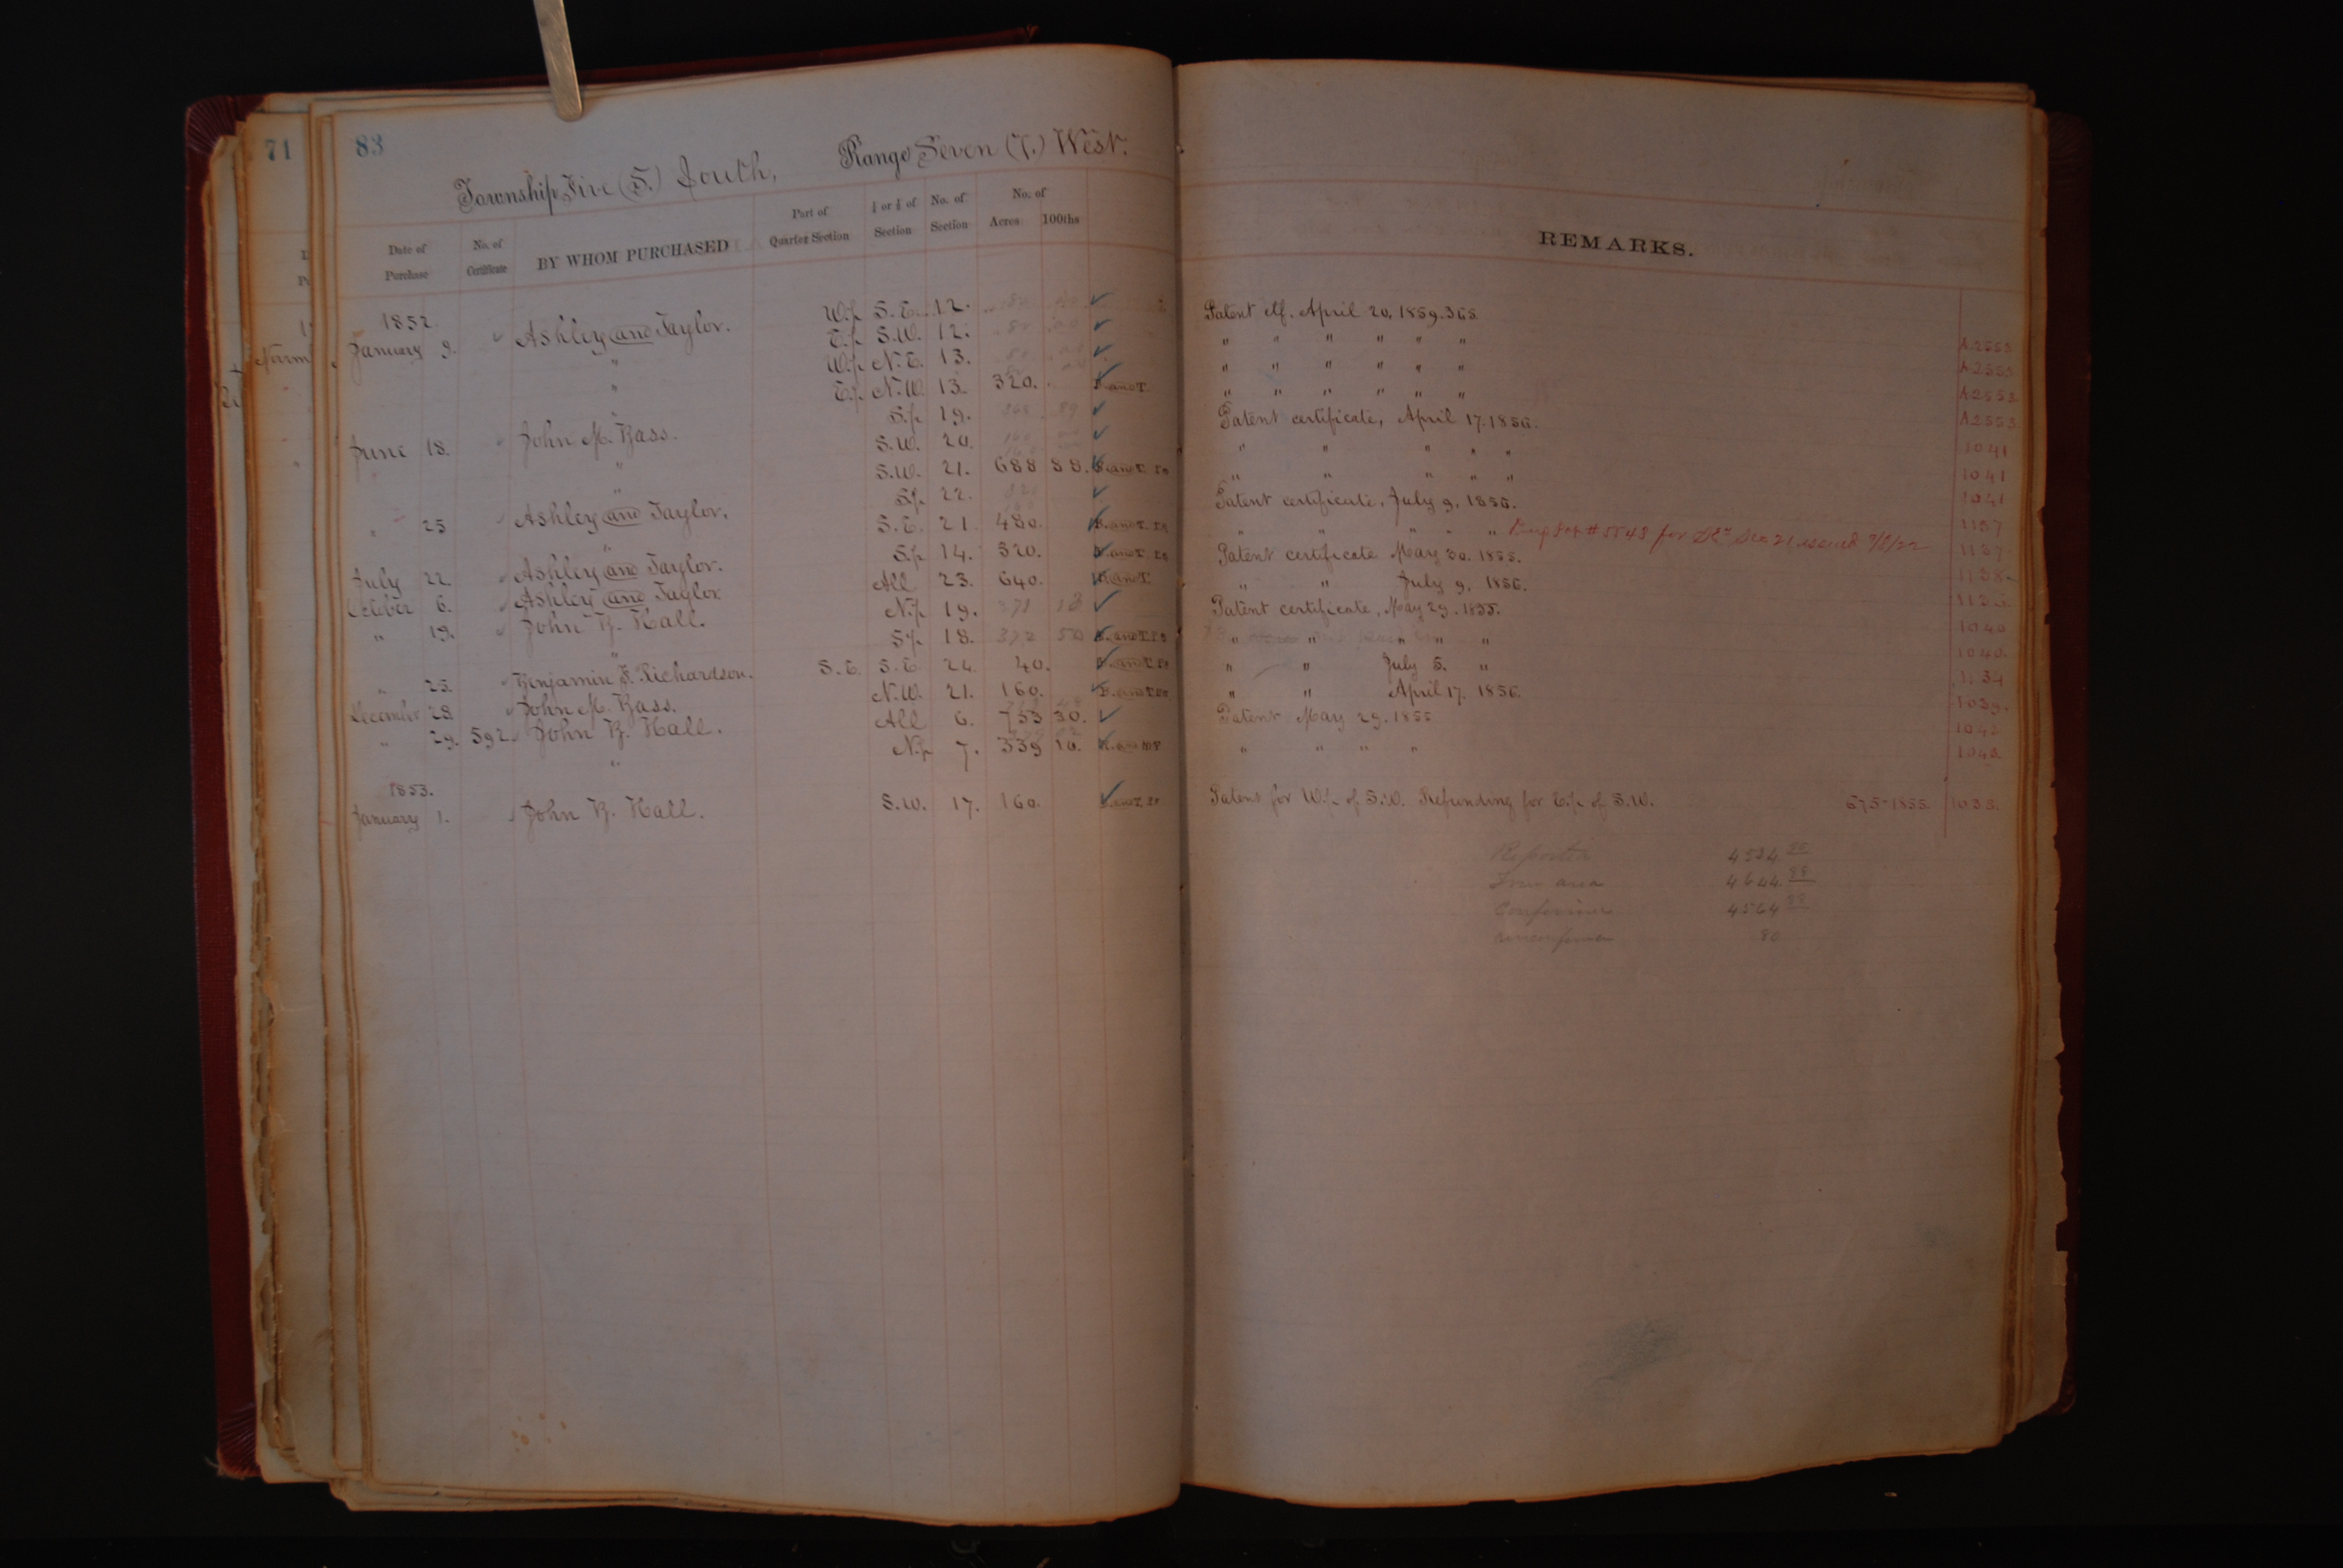 71
83
Township Five (5.) South, Range Seven (7.) West.
Date of Purchase No. of Certificate BY WHOM PURCHASED Part of Quarter Section ½ or ¼ of Section No. of Section No. of Acres 100ths
REMARKS.
1852.
January 9. Ashley and Taylor. W.½ S.E. 12. Patent elf. April 20, 1859. 365. A2553
" E.½ S.W. 12. " " " " " " A2553
" W.½ N.E. 13. " " " " " " A2553
" E.½ N.W. 13. 320. B. and T. " " " " " " A2553
June 18. John M. Bass. S.½ 19. Patent certificate, April 17. 1856. 1041
" S.W. 20. " " " " " 1041
" S.W. 21. 688 88. B. and T. " " " " " 1041
" 25 Ashley and Taylor. S.½ 22. Patent certificate, July 9, 1856. 1137
" S.E. 21 480. B. and T. " " " " " 1137
July 22. Ashley and Taylor. S.½ 14. 320. B. and T. Patent certificate May 30. 1855.
October 6. Ashley and Taylor. All 23. 640. B. and T. " " July 9, 1856.
" 19. John B. Hall. N.½ 19. 271 13 Patent certificate, May 29. 1855. 1040
" S.½ 18. 372 50 B. and T. " " " " " 1040.
" 25. Benjamin F. Richardson. S.E. S.E. 24. 40. B. and T. " " July 5. " 1134
December 28. John M. Bass. N.W. 21. 160. B. and T. " " April 17. 1856. 1039.
" 29. 592. John B. Hall. All 6. 753 30. Patent May 29. 1855 1043
" N.½ 7. 339 16. " " " " 1043.
1853.
January 1. John B. Hall. S.W. 17. 160. Patent for W.½ of S.W. Refunding for E.½ of S.W. 675-1855. 1033.
Reported
True area 4644 88
4564 88
80